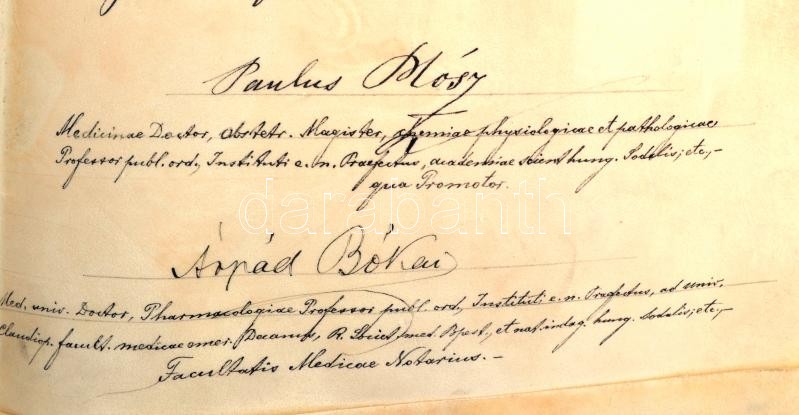 Paulus Plósz
Medicinae Doctor, obstetr. Magister, chemiae physiologicae et pathologicae
Professor publ. ord., Instituti e. n. Praefectus, academiae scient. hung. Sodalis; etc.,-
qua Promotor.
darabanth
Árpád Bókai
Med. univ. Doctor, Pharmacologiae Professor publ. ord., Instituti e. n. Praefectus, ad univ.
Claudiop. facult. medicae emer. Decanus, R. Societ. med. Bpest., et nat. indag. hung. Sodalis; etc.,-
Facultatis Medicae Notarius.-